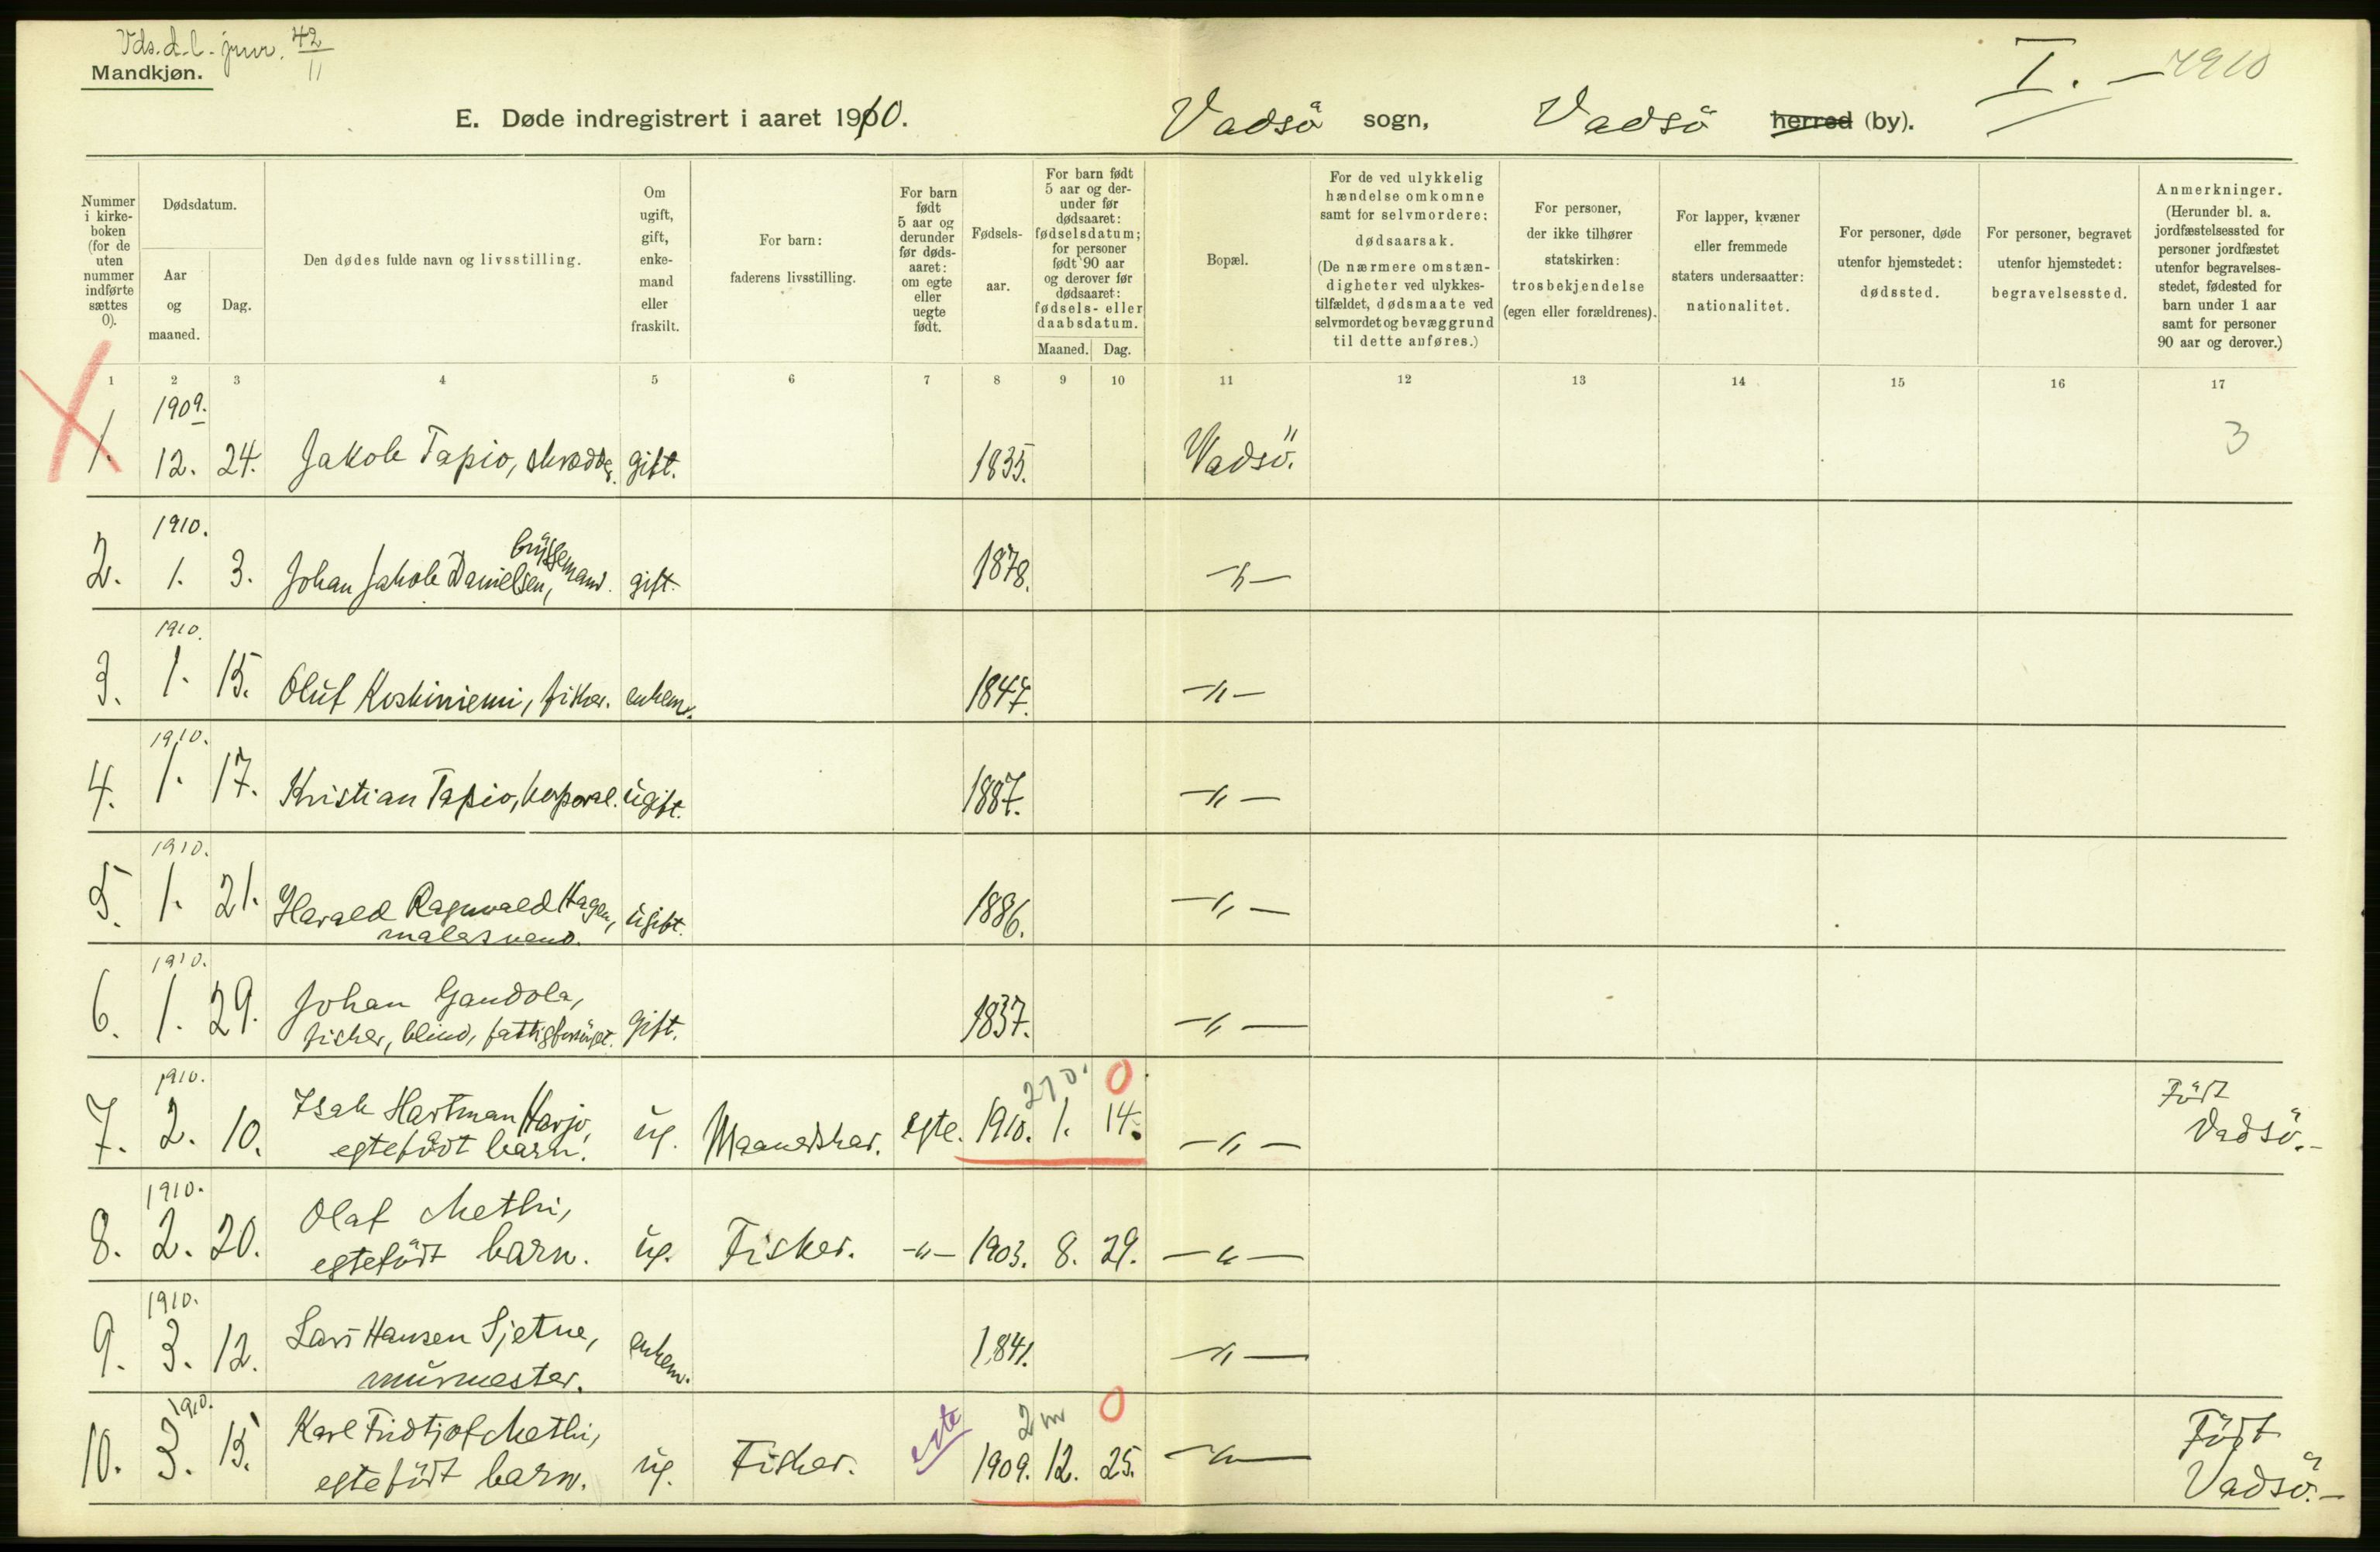 Vds. d. l. jrnr. 42/11
Mandkjøn.
I. — 1910
E. Døde indregistrert i aaret 1910. Vadsö sogn, Vadsö herred (by).
Nummer i kirke-boken (for de uten nummer indførte sættes 0).
Dødsdatum.
Aar og maaned.
Dag.
Den dødes fulde navn og livsstilling.
Om ugift, gift, enke-mand eller fraskilt.
For barn: faderens livsstilling.
For barn født 5 aar og derunder før døds-aaret: om egte eller uegte født.
Fødsels-aar.
For barn født 5 aar og der-under før dødsaaret: fødselsdatum; for personer født 90 aar og derover før dødsaaret: fødsels- eller daabsdatum.
Maaned. Dag.
Bopæl.
For de ved ulykkelig hændelse omkomne samt for selvmordere: dødsaarsak. (De nærmere omstæn-digheter ved ulykkes-tilfældet, dødsmaate ved selvmordet og bevæggrund til dette anføres.)
For personer, der ikke tilhører statskirken: trosbekjendelse (egen eller forældrenes).
For lapper, kvæner eller fremmede staters undersaatter: nationalitet.
For personer, døde utenfor hjemstedet: dødssted.
For personer, begravet utenfor hjemstedet: begravelsessted.
Anmerkninger. (Herunder bl. a. jordfæstelsessted for personer jordfæstet utenfor begravelses-stedet, fødested for barn under 1 aar samt for personer 90 aar og derover.)
1 2 3 4 5 6 7 8 9 10 11 12 13 14 15 16 17
1909.
1. 12. 24. Jakob Tapio, skrædder. gift. 1835. Vadsö. 3
1910.
2. 1. 3. Johan Jakob Danielsen, bryssemand. gift. 1878. —"—
1910.
3. 1. 15. Oluf Koskiniemi, fisker. enkem. 1847. —"—
1910.
4. 1. 17. Kristian Tapio, korporal. ugift. 1887. —"—
1910.
5. 1. 21. Harald Ragnvald Hagen, ugift. 1886. —"—
malersvend.
1910.
6. 1. 29. Johan Gandola, gift. 1837. —"—
fisker, blind, fattigforsörget.
1910. 27 d. 0
7. 2. 10. Isak Hartman Harjo, ug. Maanedskar. egte. 1910. 1. 14. —"— Födt
egtefödt barn. Vadsö.—
1910.
8. 2. 20. Olaf Methi, ug. Fisker. —"— 1903. 8. 29. —"—
egtefödt barn.
1910.
9. 3. 12. Lars Hansen Sjetne, enkem. 1841. —"—
murmester.
1910. 2 m 0
10. 3. 15. Karl Fridtjof Methi, ug. Fisker. egte 1909. 12. 25. —"— Födt
egtefödt barn. Vadsö.—